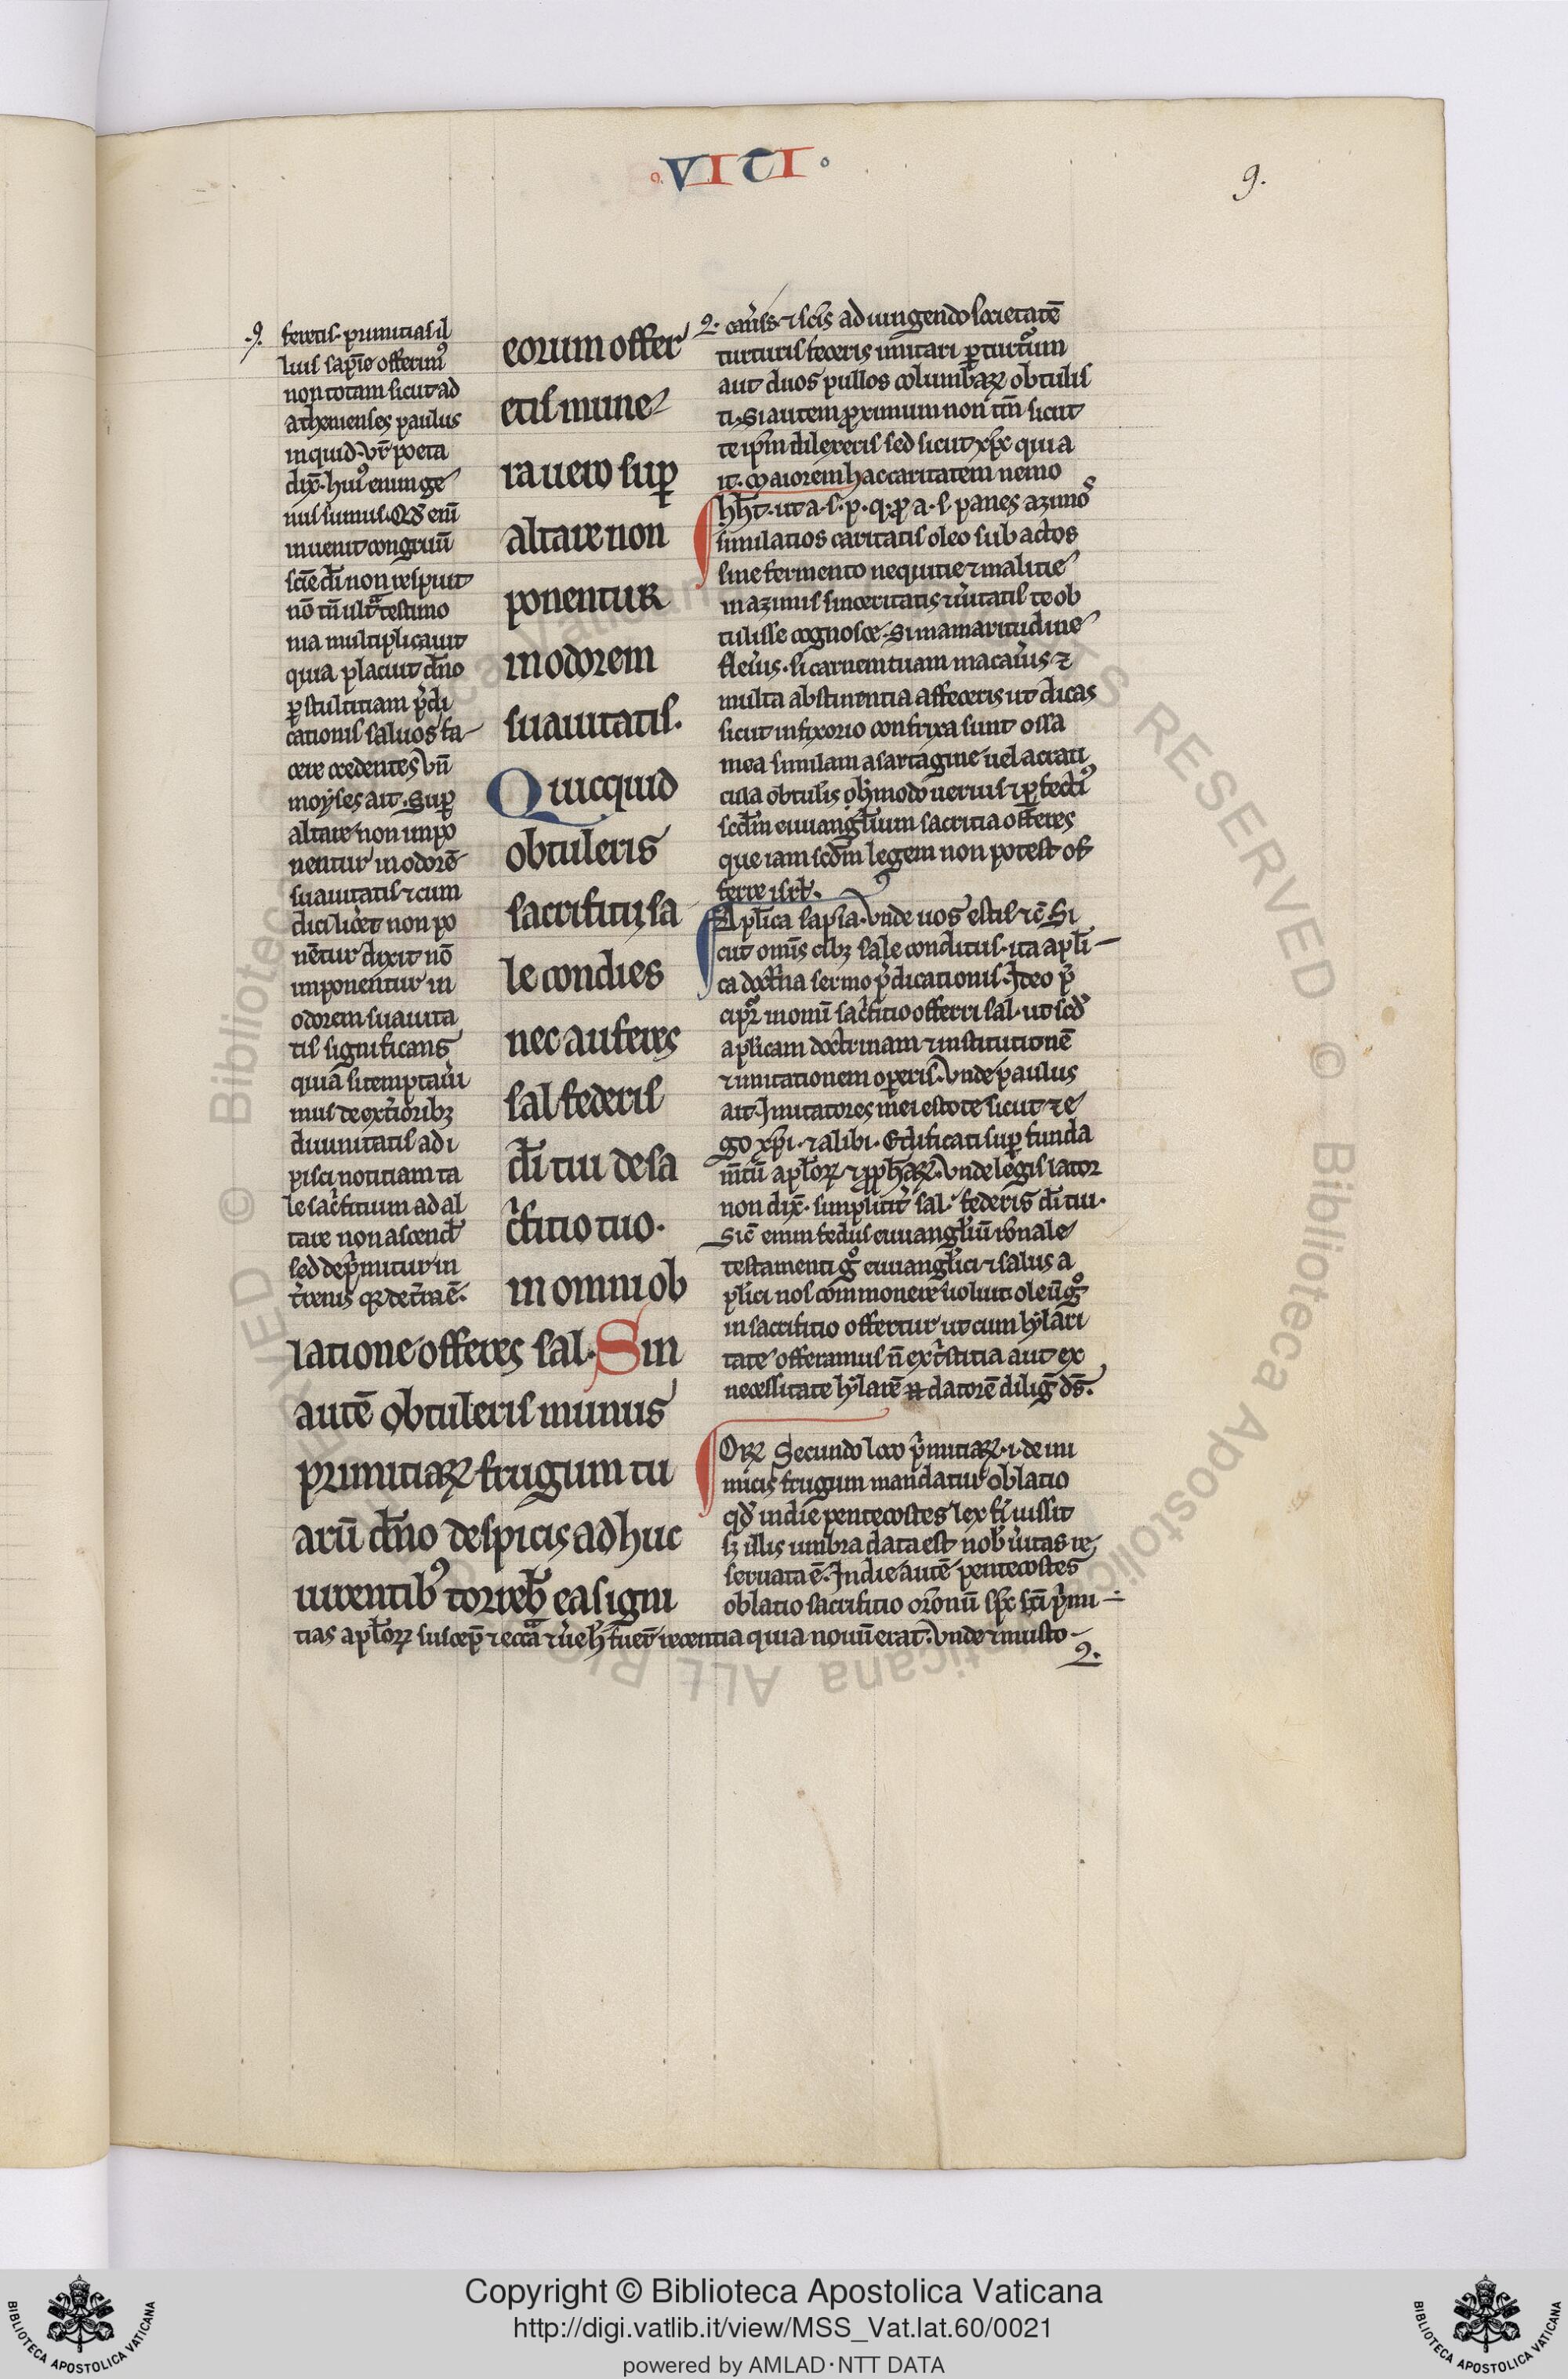 VITI
9.
feretis. primitias il
lius sapīe offerim᷒
non totam sicut ad
athenienses paulus
inquid. vt̄ poeta
dix̄. hui᷒ enim ge
nus sumus. Qd̄ eni᷒
inuenit congruū
scīe dī non respuit
nō tn̄ ultͣ testimo
nia multiplicauit
quia placuit dn̄o
ꝑ stultitiam p̄di
cationis saluos fa
cere credentes. Vn̄
moyses ait. Suꝑ
altare non inpo
nentur in odorē
suauitatis ⁊ cum
dici licet non po
nētur dixit nō
imponentur in
odorem suauita
tis significans
quia si temptaū
mus de exͭioribꝫ
diuinitatis ad i
pisci notitiam ta
le sac̄fitium ad al
tare non ascend̄
sed dep̄mitur in
t̄renis qꝛ de t̄ra ē.
eorum offer
etis mune
ra uero suꝑ
altare non
ponentur
in odorem
suauitatis.
Quicquid
obtuleris
sacrifitii sa
le condies
nec auferes
sal federis
dī tui de sa
c̄fitio tuo.
in omni ob
latione offeres sal. Sin
autē obtuleris munus
primitiaꝝ frugum tu
arū dn̄o de spicis adhuc
uirentib᷒ torreb̄ ea igni
2. car̄iss ⁊ sc̄is ad iungendo societatē
turturis feceris imitari ꝑ turturum
aut duos pullos columbaꝝ obtulis
ti. Si autem ꝓximum non tm̄ sicut
te ip̄m dilexeris sed sicut xp̄c qui a
it. Maiorem hac caritatem nemo
hh̄t. ut a. s. p. q. ꝓ a. s. panes azimos
similatios caritatis oleo subactos
sine fermento nequitie ⁊ malitie
in azimis sinceritatis ⁊ ūitatis te ob
tulisse cognosce. Si in amaritudine
fleūis. si carnem tuam macaūis ⁊
multa abstinentia affeceris ut dicas
sicut in fixorio confrixa sunt ossa
mea similam a sartagine uel a crati
cula obtulis. h̄ modo uerius ⁊ ꝑfecti᷒
scd̄m euuangl̄ium sacritia offeres
que iam scd̄m legem non potest of
ferre isrl̄.
Apl̄ica sapīa. Vnde uos estis ⁊c̄ Si
cut omīs cibꝫ sale conditus. ita apl̄i
ca doctr̄na sermo p̄dicationis. Ideo p̄
cipit in omi sac̄fitio offerri sal. ut scd̄
apl̄icam doctrinam ⁊ institutionē
⁊ imitationem oꝑis. Vnde paulus
ait. Imitatores mei estote sicut ⁊ e
go xp̄i. ⁊ alibi. Edificati suꝑ funda
m̄tū apl̄oꝝ ⁊ ꝓphaꝝ. Vnde legis lator
non dix̄. simpliciť sal. federis dī tui.
Sic̄ enim fedus euuangl̄iū
testamenti gͦ euuangl̄ici ⁊ salus a
pl̄ici nos commonere uoluit. oleū gͦ
in sacrifitio offertur ut cum hylari
tate offeramus n̄ ex tͥstitia aut ex
necessitate hylarē datorē diliḡ ds̄.
Oꝝ Secundo loco p̄mitiaꝝ. i. de ini
miciis frugum mandatur oblatio
qd̄ in die pentecostes lex fī iussit
sꝫ illis umbra data est nob̄ ūitas re
seruata ē. In die autē pentecostes
oblatio sacrifitio sp̄c sc̄i p̄mi
tias apl̄oꝝ suscep̄ ⁊ fuer̄ recentia quia nouū erat. Vnde ⁊ musto
2.
Copyright © Biblioteca Apostolica Vaticana
http://digi.vatlib.it/view/MSS_Vat.lat.60/0021
powered by AMLAD·NTT DATA
BIBLIOTECA APOSTOLICA VATICANA
BIBLIOTECA APOSTOLICA VATICANA